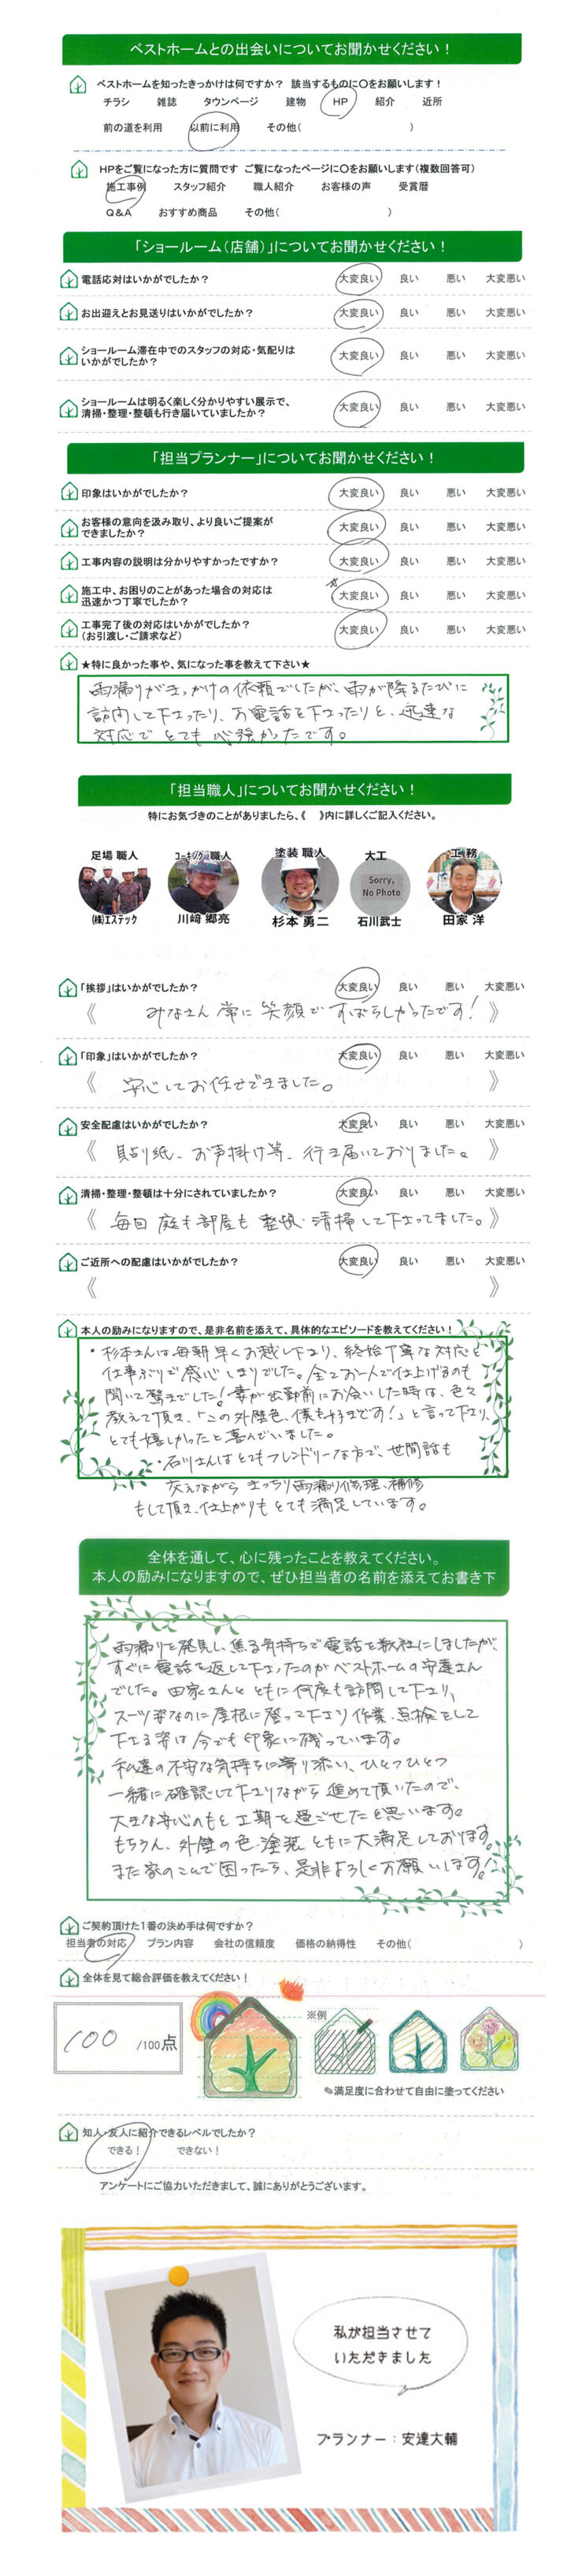 ベストホームとの出会いについてお聞かせください！
ベストホームを知ったきっかけは何ですか？ 該当するものに〇をお願いします！
チラシ 雑誌 タウンページ 建物 HP 紹介 近所
前の道を利用 以前に利用 その他（ ）
HPをご覧になった方に質問です ご覧になったページに〇をお願いします（複数回答可）
施工事例 スタッフ紹介 職人紹介 お客様の声 受賞暦
Q&A おすすめ商品 その他（ ）
「ショールーム（店舗）」についてお聞かせください！
電話応対はいかがでしたか？ 大変良い 良い 悪い 大変悪い
お出迎えとお見送りはいかがでしたか？ 大変良い 良い 悪い 大変悪い
ショールーム滞在中でのスタッフの対応・気配りは
いかがでしたか？ 大変良い 良い 悪い 大変悪い
ショールームは明るく楽しく分かりやすい展示で、
清掃・整理・整頓も行き届いていましたか？ 大変良い 良い 悪い 大変悪い
「担当プランナー」についてお聞かせください！
印象はいかがでしたか？ 大変良い 良い 悪い 大変悪い
お客様の意向を汲み取り、より良いご提案が
できましたか？ 大変良い 良い 悪い 大変悪い
工事内容の説明は分かりやすかったですか？ 大変良い 良い 悪い 大変悪い
施工中、お困りのことがあった場合の対応は
迅速かつ丁寧でしたか？ 大変良い 良い 悪い 大変悪い
工事完了後の対応はいかがでしたか？
（お引渡し・ご請求など） 大変良い 良い 悪い 大変悪い
★特に良かった事や、気になった事を教えて下さい★
雨漏りがきっかけの依頼でしたが、雨が降るたびに
訪問して下さったり、お電話を下さったりと、迅速な
対応で とても心強かったです。
「担当職人」についてお聞かせください！
特にお気づきのことがありましたら、《 》内に詳しくご記入ください。
足場 職人 コーキング 職人 塗装 職人 大工 工務
Sorry,
No Photo
㈱エステック 川﨑 郷亮 杉本 勇二 石川武士 田家 洋
「挨拶」はいかがでしたか？ 大変良い 良い 悪い 大変悪い
《 みなさん 常に 笑顔で すばらしかったです！ 》
「印象」はいかがでしたか？ 大変良い 良い 悪い 大変悪い
《 安心してお任せできました。 》
安全配慮はいかがでしたか？ 大変良い 良い 悪い 大変悪い
《 貼り紙、お声掛け等、行き届いておりました。 》
清掃・整理・整頓は十分にされていましたか？ 大変良い 良い 悪い 大変悪い
《 毎回 庭も部屋も 整頓・清掃して下さってました。 》
ご近所への配慮はいかがでしたか？ 大変良い 良い 悪い 大変悪い
《 》
本人の励みになりますので、是非名前を添えて、具体的なエピソードを教えてください！
・杉本さんは毎朝早くお越し下さり、終始丁寧な対応と
仕事ぶりで感心しきりでした。全てお一人で仕上げるのも
聞いて驚きでした！妻が出勤前にお会いした時は、色々
教えて頂き、「この外壁色、僕も好きです！」と言って下さり、
とても嬉しかったと喜んでいました。
・石川さんはとてもフレンドリーな方で、世間話も
交えながら きっちり雨漏り修理、補修
もして頂き、仕上がりもとても満足しています。
全体を通して、心に残ったことを教えてください。
本人の励みになりますので、ぜひ担当者の名前を添えてお書き下
雨漏りを発見し、焦る気持ちで電話を数社にしましたが、
すぐに電話を返して下さったのがベストホームの安達さん
でした。田家さんと ともに何度も訪問して下さり、
スーツ姿なのに屋根に登って下さり作業、点検をして
下さる姿は今でも印象に残っています。
私達の不安な気持ちに寄り添い、ひとつひとつ
一緒に確認して下さりながら進めて頂いたので、
大きな安心のもと工期を過ごせたと思います。
もちろん、外壁の色・塗装 ともに大満足しております。
また家のことで困ったら、是非よろしくお願いします！
ご契約頂けた1番の決め手は何ですか？
担当者の対応 プラン内容 会社の信頼度 価格の納得性 その他（ ）
全体を見て総合評価を教えてください！
100 /100点
※例
✎満足度に合わせて自由に塗ってください
知人・友人に紹介できるレベルでしたか？
できる！ できない！
アンケートにご協力いただきまして、誠にありがとうございます。
私が担当させて
いただきました
プランナー：安達大輔